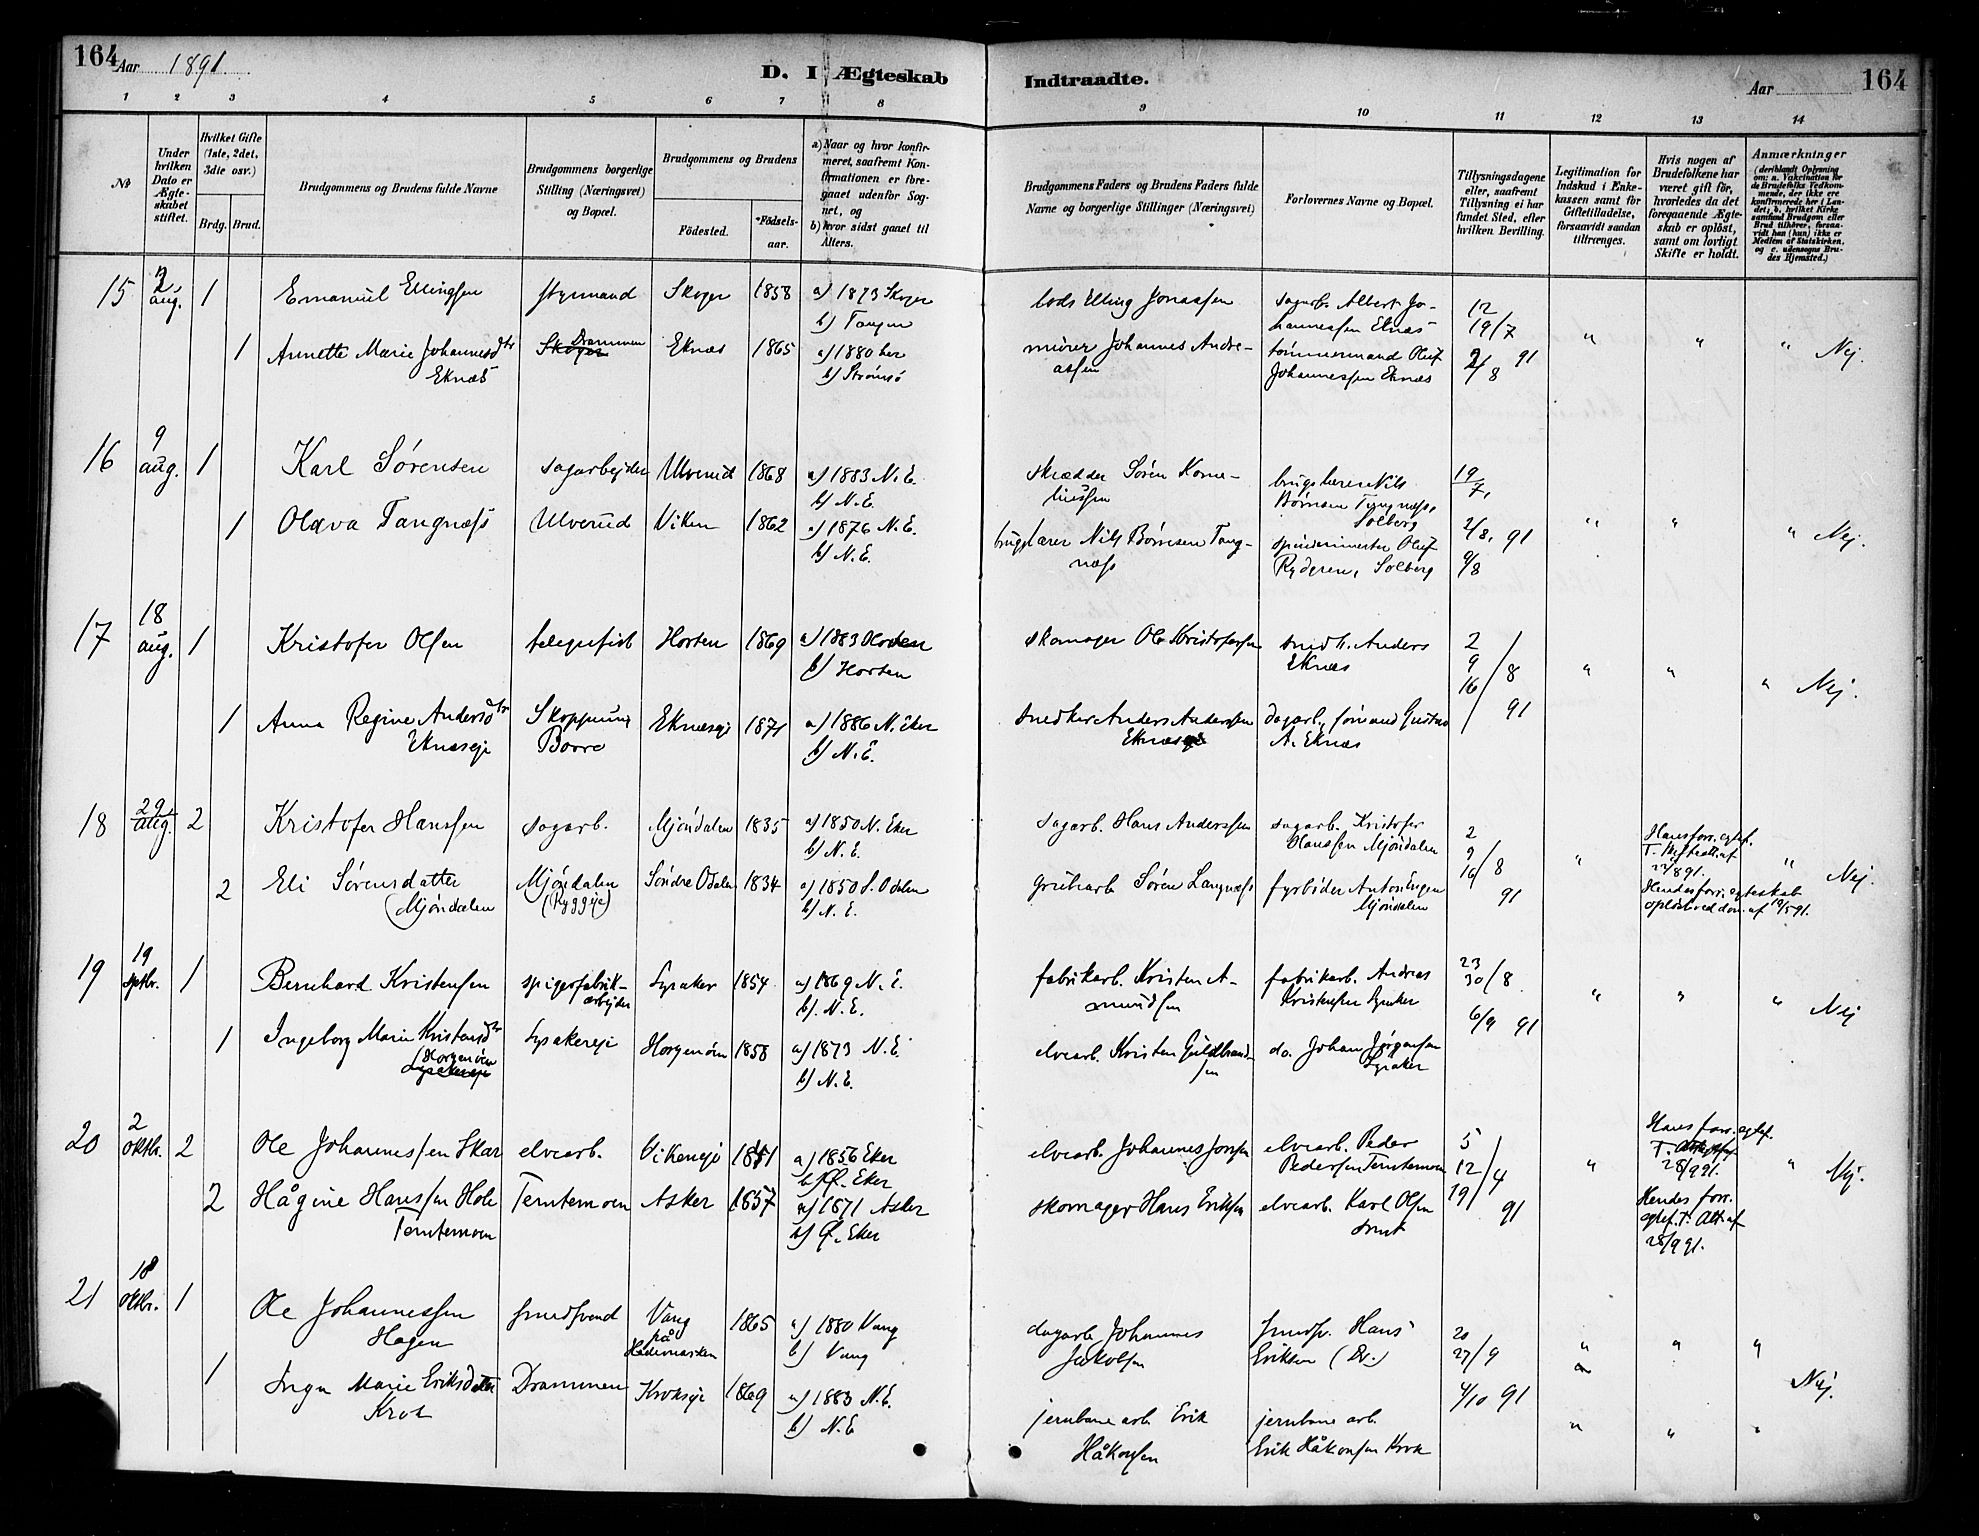 164 Aar 1891.
D. I Ægteskab Indtraadte.
Aar 164
1 2 3 4 5 6 7 8 9 10 11 12 13 14
No
Under hvilken Dato er Ægteskabet stiftet.
Hvilket Gifte (1ste, 2det, 3die osv.)
Brdg. Brud.
Brudgommens og Brudens fulde Navne
Brudgommens borgerlige Stilling (Næringsvei) og Bopæl.
Brudgommens og Brudens
Fødested.
Fødsels-aar.
a) Naar og hvor konfirmeret, saafremt Konfirmationen er foregaaet udenfor Sognet, og
b) hvor sidst gaaet til Alters.
Brudgommens Faders og Brudens Faders fulde Navne og borgerlige Stillinger (Næringsvei)
Forlovernes Navne og Bopæl.
Tillysningsdagene eller, saafremt Tillysning ei har fundet Sted, efter hvilken Bevilling.
Legitimation for Indskud i Enkekassen samt for Giftetilladelse, forsaavidt saadan tiltrænges.
Hvis nogen af Brudefolkene har været gift før, hvorledes da det foregaaende Ægteskab er opløst, samt om lovligt Skifte er holdt.
Anmærkninger
(deriblandt Oplysning om: a. Vakcination for de Brudefolks Vedkommende, der ikke ere konfirmerede her i Landet; b. hvilket Kirkesamfund Brudgom eller Brud tilhører, forsaavidt han (hun) ikke er Medlem af Statskirken, og c. udensogns Brudes Hjemsted.)
15 2 aug. 1 Emanuel Ellingsen styrmand Skoger 1858 a) 1873 Skoger
b) Tangen
lods Elling Jonassen
sagarb. Albert Johannessen Eknæs
12
19/7
1 Annette Marie Johannesdtr Eknæs
Skoger Drammen Eknæs 1865 a) 1880 her
b) Strømsø
murer Johannes Andreassen
tømmermand Oluf Johannessen Eknæs
2/8 91
" " " Nej.
16 9 aug. 1 Karl Sørensen sagarbejder Ulverud 1868 a) 1883 N.E.
b) N.E.
skrædder Søren Korneliussen
brugslærer Nils Børresen Tangnæss, Solberg
19/7,
1 Olava Tangnæss Ulverud Viken 1862 a) 1876 N.E.
b) N.E.
brugslærer Nils Børresen Tangnæss
spindemester Oluf Rydgren, Solberg
2/8, 91
9/8
" " " Nej.
17 18 aug. 1 Kristofer Olsen telegrafist Horten 1869 a) 1883 Horten
b) Horten
skomager Ole Kristofersen
snedk. Anders Eknæs
2
9
16/8
1 Anna Regine Andersdtr Eknæseje
Skoppum Borre Eknæseje 1871 a) 1886 N. Eker
b) N.E.
snedker Anders Anderssen Eknæseje
A. Eknæs
91
" " " Nej.
18 29 aug. 2 Kristofer Hanssen sagarb. Mjøndalen 1835 a) 1850 N. Eker
b) N.E.
sagarb. Hans Anderssen
sagarb. Kristofer Olanssen Mjøndalen
2
9
16/8
91
2 Eli Sørensdatter (Mjøndalen
Mjøndalen (Ryggeje) Søndre Odalen 1834 a) 1850 S. Odalen
b) N.E.
grubearb. Søren Langnæss
fyrbøder Anton Engen Mjøndalen
Hans forr. egtef.
Hendes forr. egteskab opløst ved dom af 19/5 91.
" " Nej.
19 19 septbr. 1 Bernhard Kristensen spigerfabrik-arbejder Lysaker 1854 a) 1869 N.E.
b) N.E.
fabrikarb. Kristen Amundsen
fabrikarb. Andreas Kristensen Lysaker
23
30/8
6/9 91
1 Ingeborg Marie Kristensdtr (Horgenøen
Lysakereje Horgenøen 1858 a) 1873 N.E.
b) N.E.
elvearb. Kristen Guldbrandsen
do. Johan Jørgensen Lysaker
" " " Nej
20 2 oktbr. 2 Ole Johannessen Skar elvearb. Vikeneje 1841 a) 1856 Eker
b) Ø. Eker
elvearb. Johannes Jonsen
elvearb. Peder Pedersen Terntemoen
5
12/4
19
91
2 Hågine Hanssen Hole Terntemoen
Terntemoen Asker 1857 a) 1871 Asker
b) Ø. Eker
skomager Hans Eriksen
elvearb. Karl Olsen
Hans forr. egtef.
28/9 91.
Hendes forr. egtef. T. Att. af 28/9 91.
" " Nej.
21 18 oktbr. 1 Ole Johannessen Hagen
smedsvend Vang på Hedemarken 1865 a) 1880 Vang
b) Vang
dagarb Johannes Jakobsen
smedsv. Hans Eriksen (Dr.)
20
27/9
4/10 91
1 Inga Marie Eriksdatter Krok
Drammen Krokseje 1869 a) 1883 N.E.
b) N.E
jernbane arb. Erik Håkonsen
jernbane arb. Erik Håkonsen Krok
" " " Nej.
" " "